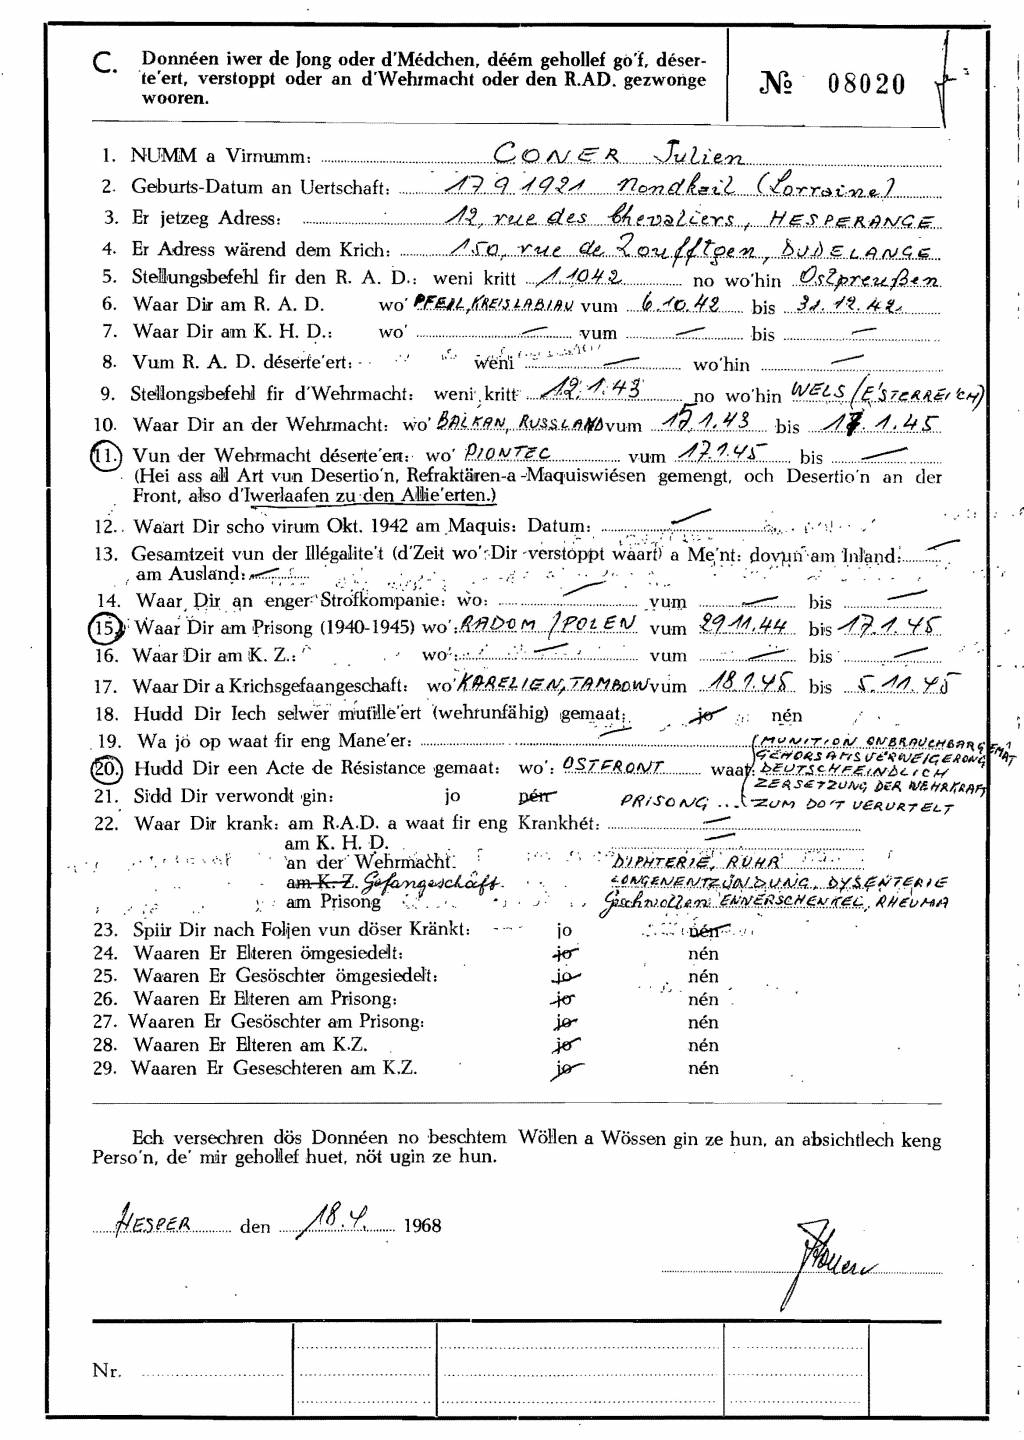 C. Donnéen iwer de Jong oder d'Médchen, déém gehollef go'f, déser-
te'ert, verstoppt oder an d'Wehrmacht oder den R.AD. gezwonge
wooren.
№ 08020
1. NUMM a Virnumm: CONER Julien
2. Geburts-Datum an Uertschaft: 17 9 1921 Nondkeil (Lorraine)
3. Er jetzeg Adress: 12, rue des Chevaliers, HESPERANGE
4. Er Adress wärend dem Krich: 150, rue de Zoufftgen, DUDELANGE
5. Stellungsbefehl fir den R. A. D.: weni kritt 1 10 42 no wo'hin Ostpreußen
6. Waar Dir am R. A. D. wo' PFEIL, KREIS LABIAU vum 6.10.42 bis 31.12.42
7. Waar Dir am K. H. D.: wo' — vum — bis —
8. Vum R. A. D. déserte'ert: weni — wo'hin —
9. Stellongsbefehl fir d'Wehrmacht: weni kritt 12.1.43 no wo'hin WELS (E'STERREI'CH)
10. Waar Dir an der Wehrmacht: wo' BALKAN, RUSSLAND vum 17 1.43 bis 17.1.45
11. Vun der Wehrmacht déserte'ert: wo' PIONTEC vum 17.1.45 bis —
(Hei ass all Art vun Desertio'n, Refraktären-a -Maquiswiésen gemengt, och Desertio'n an der
Front, also d'Iwerlaafen zu den Allie'erten.)
12. Waart Dir scho virum Okt. 1942 am Maquis: Datum: —
13. Gesamtzeit vun der Illégalite't (d'Zeit wo' Dir verstoppt waart) a Me'nt: dovun am Inland: —
am Ausland: —
14. Waar Dir an enger Strofkompanie: wo: — vum — bis —
15. Waar Dir am Prisong (1940-1945) wo': RADOM / POLEN vum 29 11.44 bis 17.1.45
16. Waar Dir am K. Z.: wo': — vum — bis —
17. Waar Dir a Krichsgefaangeschaft: wo' KARELIEN, TAMBOW vum 18.1.45 bis 5.11.45
18. Hudd Dir Iech selwer mutille'ert (wehrunfähig) gemaat: jo nén
19. Wa jo op waat fir eng Mane'er: —
(MUNITION ONBRAUCHBAR GEMAT
20. Hudd Dir een Acte de Résistance gemaat: wo': OSTFRONT waat: GEHORSAMSVERWEIGERONG
DEUTSCHFEINDLICH
ZERSETZUNG DER WEHRKRAFT
21. Sidd Dir verwondt gin: jo nén PRISONG ... ZUM DO'T VERURTELT
22. Waar Dir krank: am R.A.D. a waat fir eng Krankhét: —
am K. H. D. —
an der Wehrmacht: DIPHTERIE, RUHR
am K. Z. Gefangeschaft. LONGENENTZÜNDUNG, DYSENTERIE
am Prisong Geschwollen ENNERSCHENKEL, RHEUMA
23. Spiir Dir nach Foljen vun döser Kränkt: jo nén
24. Waaren Er Elteren ömgesiedelt: jo nén
25. Waaren Er Gesöschter ömgesiedelt: jo nén
26. Waaren Er Elteren am Prisong: jo nén
27. Waaren Er Gesöschter am Prisong: jo nén
28. Waaren Er Elteren am K.Z. jo nén
29. Waaren Er Geseschteren am K.Z. jo nén
Ech versechren dös Donnéen no beschtem Wöllen a Wössen gin ze hun, an absichtlech keng
Perso'n, de' mir gehollef huet, nöt ugin ze hun.
HESPER den 18.4. 1968
JConer
Nr.